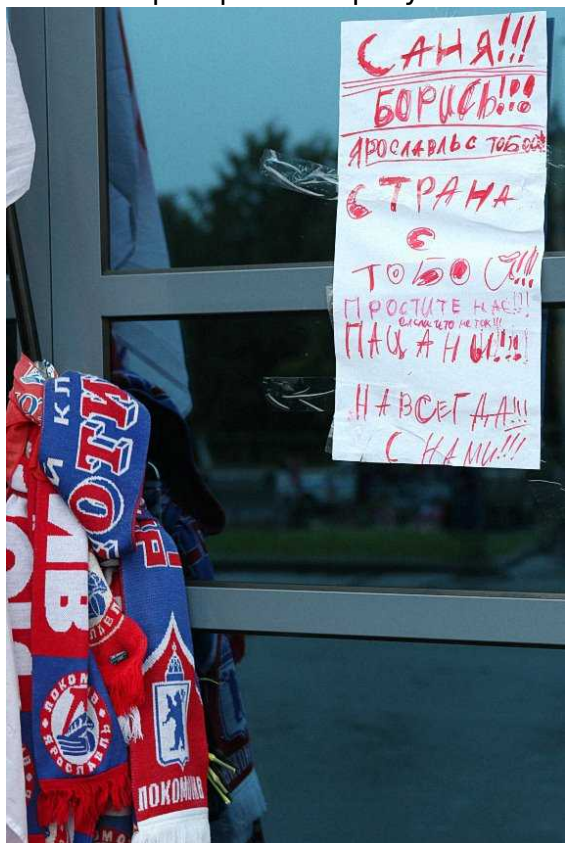 САНЯ!!!
БОРИСЬ!!!
ЯРОСЛАВЛЬ С ТОБОЙ!
СТРАНА
С
ТОБОЙ!!!
ПРОСТИТЕ НАС!!!
ЕСЛИ ЧТО НЕ ТАК!!!
ПАЦАНЫ!!!
НАВСЕГДА!!!
С НАМИ!!!
И КЛ
ОТИ
ЛОКОМОТИВ
ЯРОСЛАВЛЬ